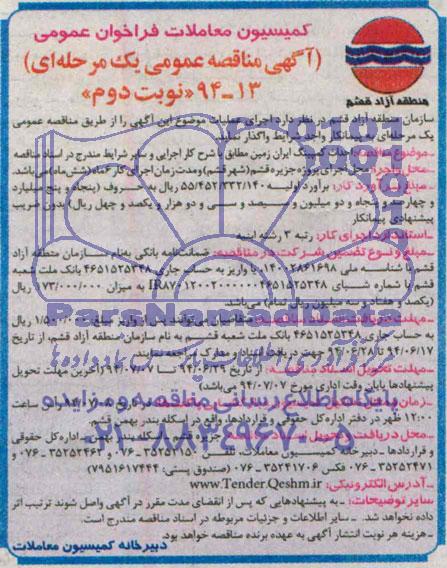 کمیسیون معاملات فراخوان عمومی
(آگهی مناقصه عمومی یک مرحله‌ای)
۱۳-۹۴ «نوبت دوم»
منطقه آزاد قشم
سازمان منطقه آزاد قشم در نظر دارد اجرای عملیات موضوع این آگهی را از طریق مناقصه عمومی
یک مرحله‌ای به پیمانکار واجد شرایط واگذار نماید.
موضوع مناقصه: احداث کمپینگ ایران زمین مطابق با شرح کار اجرایی و سایر شرایط مندرج در اسناد مناقصه
محل اجرا: محل اجرای پروژه جزیره قشم (شهر قشم) و مدت زمان اجرای کار ۶ ماه (شش ماه) می‌باشد.
برآورد اولیه ۵۵/۴۵۲/۳۳۲/۱۴۰ ریال به حروف (پنجاه و پنج میلیارد
و چهارصد و پنجاه و دو میلیون و سیصد و سی و دو هزار و یکصد و چهل ریال) بدون ضریب
پیشنهادی پیمانکار
اجرای کار: رتبه ۳ رشته ابنیه
مبلغ و نوع تضمین شرکت در مناقصه: ضمانت‌نامه بانکی بنام سازمان منطقه آزاد
قشم با شناسه ملی ۱۴۰۰۲۸۶۱۶۹۸ یا واریز به حساب جاری ۴۶۵۱۵۲۵۳۴۸ بانک ملت شعبه
قشم با شماره شبای ۴۶۵۱۵۲۵۳۴۸ به میزان ۰۰۰/۰۰۰/ ریال
(یکصد و هفتاد و سه میلیون ریال تمام) می‌باشد.
متقاضیان می‌توانند پس از واریز مبلغ ۱/۵۰۰/۰۰۰ ریال
به حساب جاری ۴۶۵۱۵۲۵۳۴۸ بانک ملت شعبه قشم به نام سازمان منطقه آزاد قشم، از تاریخ
۹۴/۰۶/۱۷ تا ۹۴/۰۶/۲۸ جهت دریافت اسناد و مدارک مراجعه نمایند.
مهلت تحویل اسناد از تاریخ ۹۴/۰۶/۲۹ تا ۹۴/۰۷/۰۷ (آخرین مهلت تحویل
پیشنهادها پایان وقت اداری مورخ ۹۴/۰۷/۰۷ می‌باشد)
زمان ساعت
۱۲:۰۰ ظهر در دفتر اداره کل حقوقی و قراردادها واقع در اسکله بندر بهمن قشم.
محل دریافت و تحویل جزیره قشم - اسکله بندر بهمن - اداره کل حقوقی
و قراردادها - دبیرخانه کمیسیون معاملات. تلفن ۳۵۲۵۲۱۵۰-۰۷۶ و ۳۵۲۵۲۴۶۳-۰۷۶ و
۳۵۲۵۲۴۷۱-۰۷۶ فکس ۳۵۲۴۱۷۰۶-۰۷۶ (صندوق پستی: ۷۹۵۱۶۱۷۴۴۴)
آدرس الکترونیکی: www.Tender.Qeshm.ir
سایر توضیحات: - به پیشنهادهایی که پس از انقضای مدت مقرر در آگهی واصل شوند ترتیب اثر
داده نخواهد شد. - سایر اطلاعات و جزئیات مربوطه در اسناد مناقصه مندرج است.
- هزینه هر نوبت انتشار آگهی به عهده برنده مناقصه خواهد بود.
دبیرخانه کمیسیون معاملات
ParsNamadData
پایگاه اطلاع رسانی مناقصه و مزایده
۰۲۱-۸۸۳۴۹۶۷۰-۵